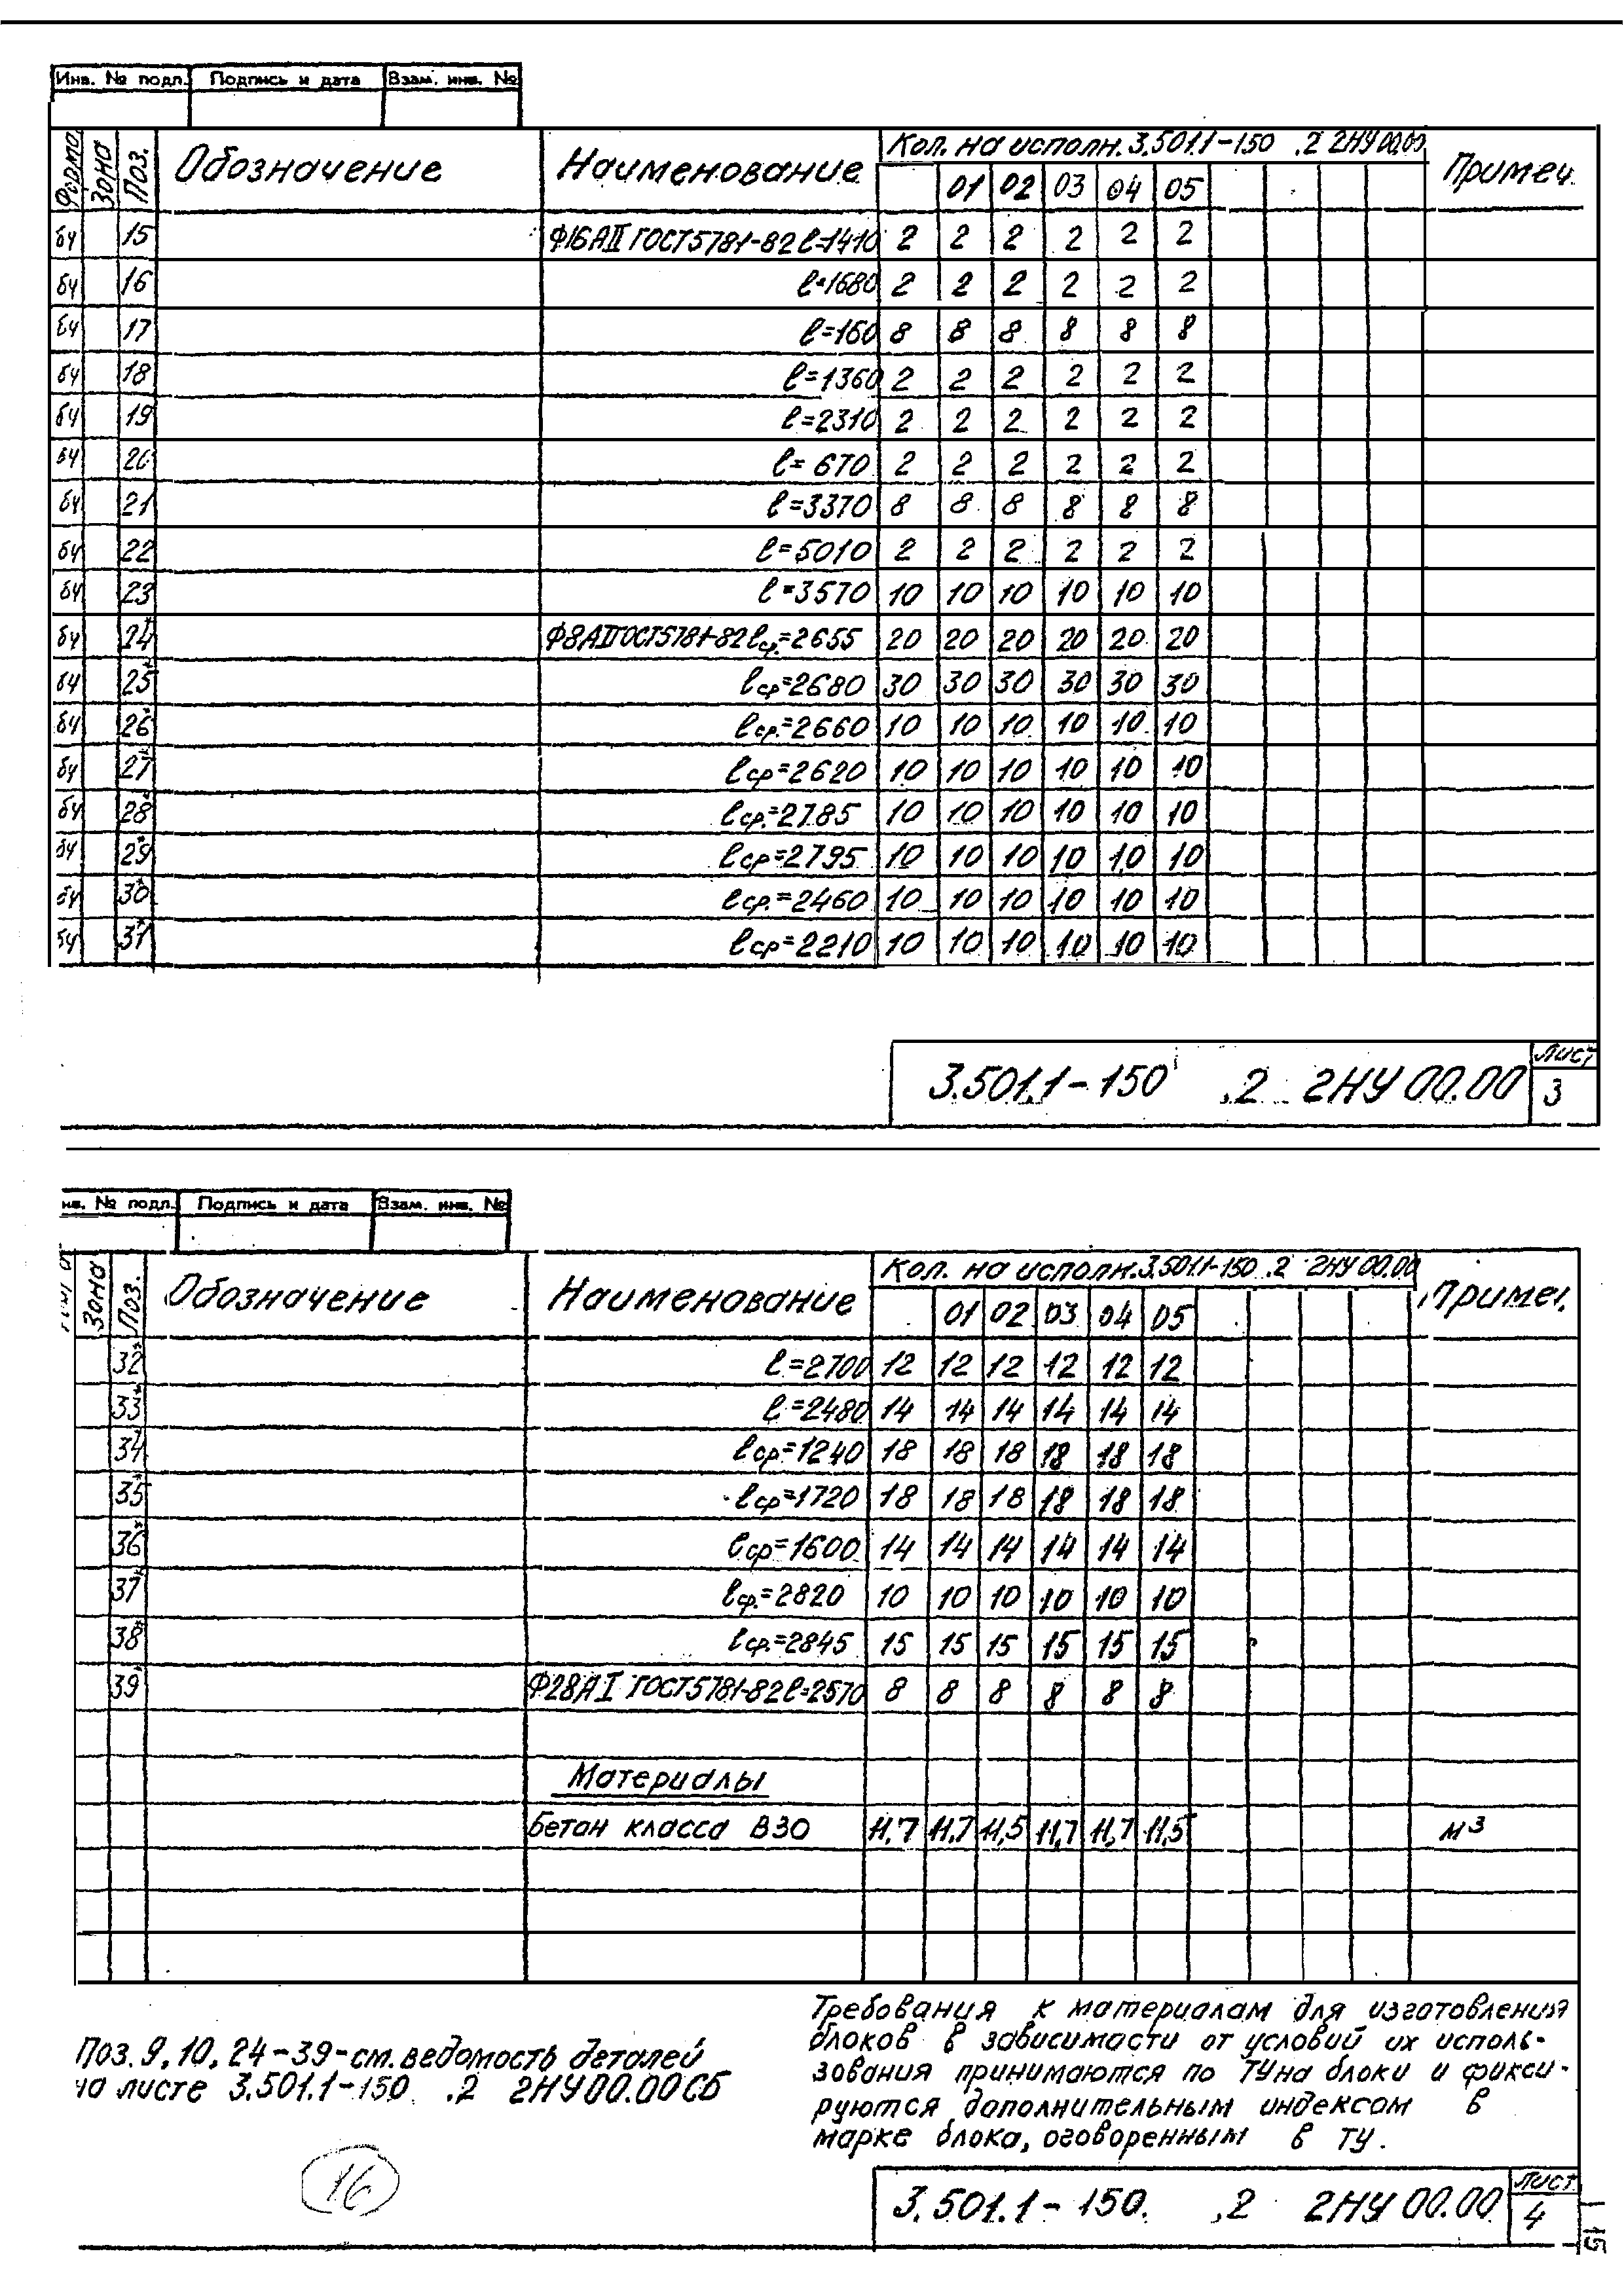 Инв. № подл. Подпись и дата Взам. инв. №
Форма Зона Поз. Обозначение Наименование Кол. на исполн. 3.501.1-150 .2 2НУ 00.00 Примеч.
01 02 03 04 05
бч 15 Ф16АII ГОСТ5781-82 ℓ=1410 2 2 2 2 2 2
бч 16 ℓ=1680 2 2 2 2 2 2
бч 17 ℓ=160 8 8 8 8 8 8
бч 18 ℓ=1360 2 2 2 2 2 2
бч 19 ℓ=2310 2 2 2 2 2 2
бч 20 ℓ=670 2 2 2 2 2 2
бч 21 ℓ=3370 8 8 8 8 8 8
бч 22 ℓ=5010 2 2 2 2 2 2
бч 23 ℓ=3570 10 10 10 10 10 10
бч 24* Ф8АII ГОСТ5781-82 ℓср.=2655 20 20 20 20 20 20
бч 25* ℓср=2680 30 30 30 30 30 30
бч 26* ℓср.=2660 10 10 10 10 10 10
бч 27* ℓср=2620 10 10 10 10 10 10
бч 28* ℓср.=2785 10 10 10 10 10 10
бч 29* ℓср=2795 10 10 10 10 10 10
бч 30* ℓср.=2460 10 10 10 10 10 10
бч 31* ℓср=2210 10 10 10 10 10 10
3.501.1-150 .2 2НУ 00.00 Лист 3
нв. № подл. Подпись и дата Взам. инв. №
Зона Поз. Обозначение Наименование Кол. на исполн. 3.501.1-150 .2 2НУ 00.00 Примеч.
01 02 03 04 05
32* ℓ=2700 12 12 12 12 12 12
33* ℓ=2480 14 14 14 14 14 14
34* ℓср.=1240 18 18 18 18 18 18
35* ℓср=1720 18 18 18 18 18 18
36* ℓср=1600 14 14 14 14 14 14
37* ℓср.=2820 10 10 10 10 10 10
38* ℓср.=2845 15 15 15 15 15 15
39* Ф28АI ГОСТ5781-82 ℓ=2570 8 8 8 8 8 8
Материалы
Бетон класса В30 11,7 11,7 11,5 11,7 11,7 11,5 м³
Поз. 9, 10, 24-39-см. ведомость деталей
на листе 3.501.1-150 .2 2НУ00.00СБ
Требования к материалам для изготовления
блоков в зависимости от условий их исполь-
зования принимаются по ТУ на блоки и фикси-
руются дополнительным индексом в
марке блока, оговоренным в ТУ.
16
3.501.1-150. .2 2НУ 00.00 Лист 4
15